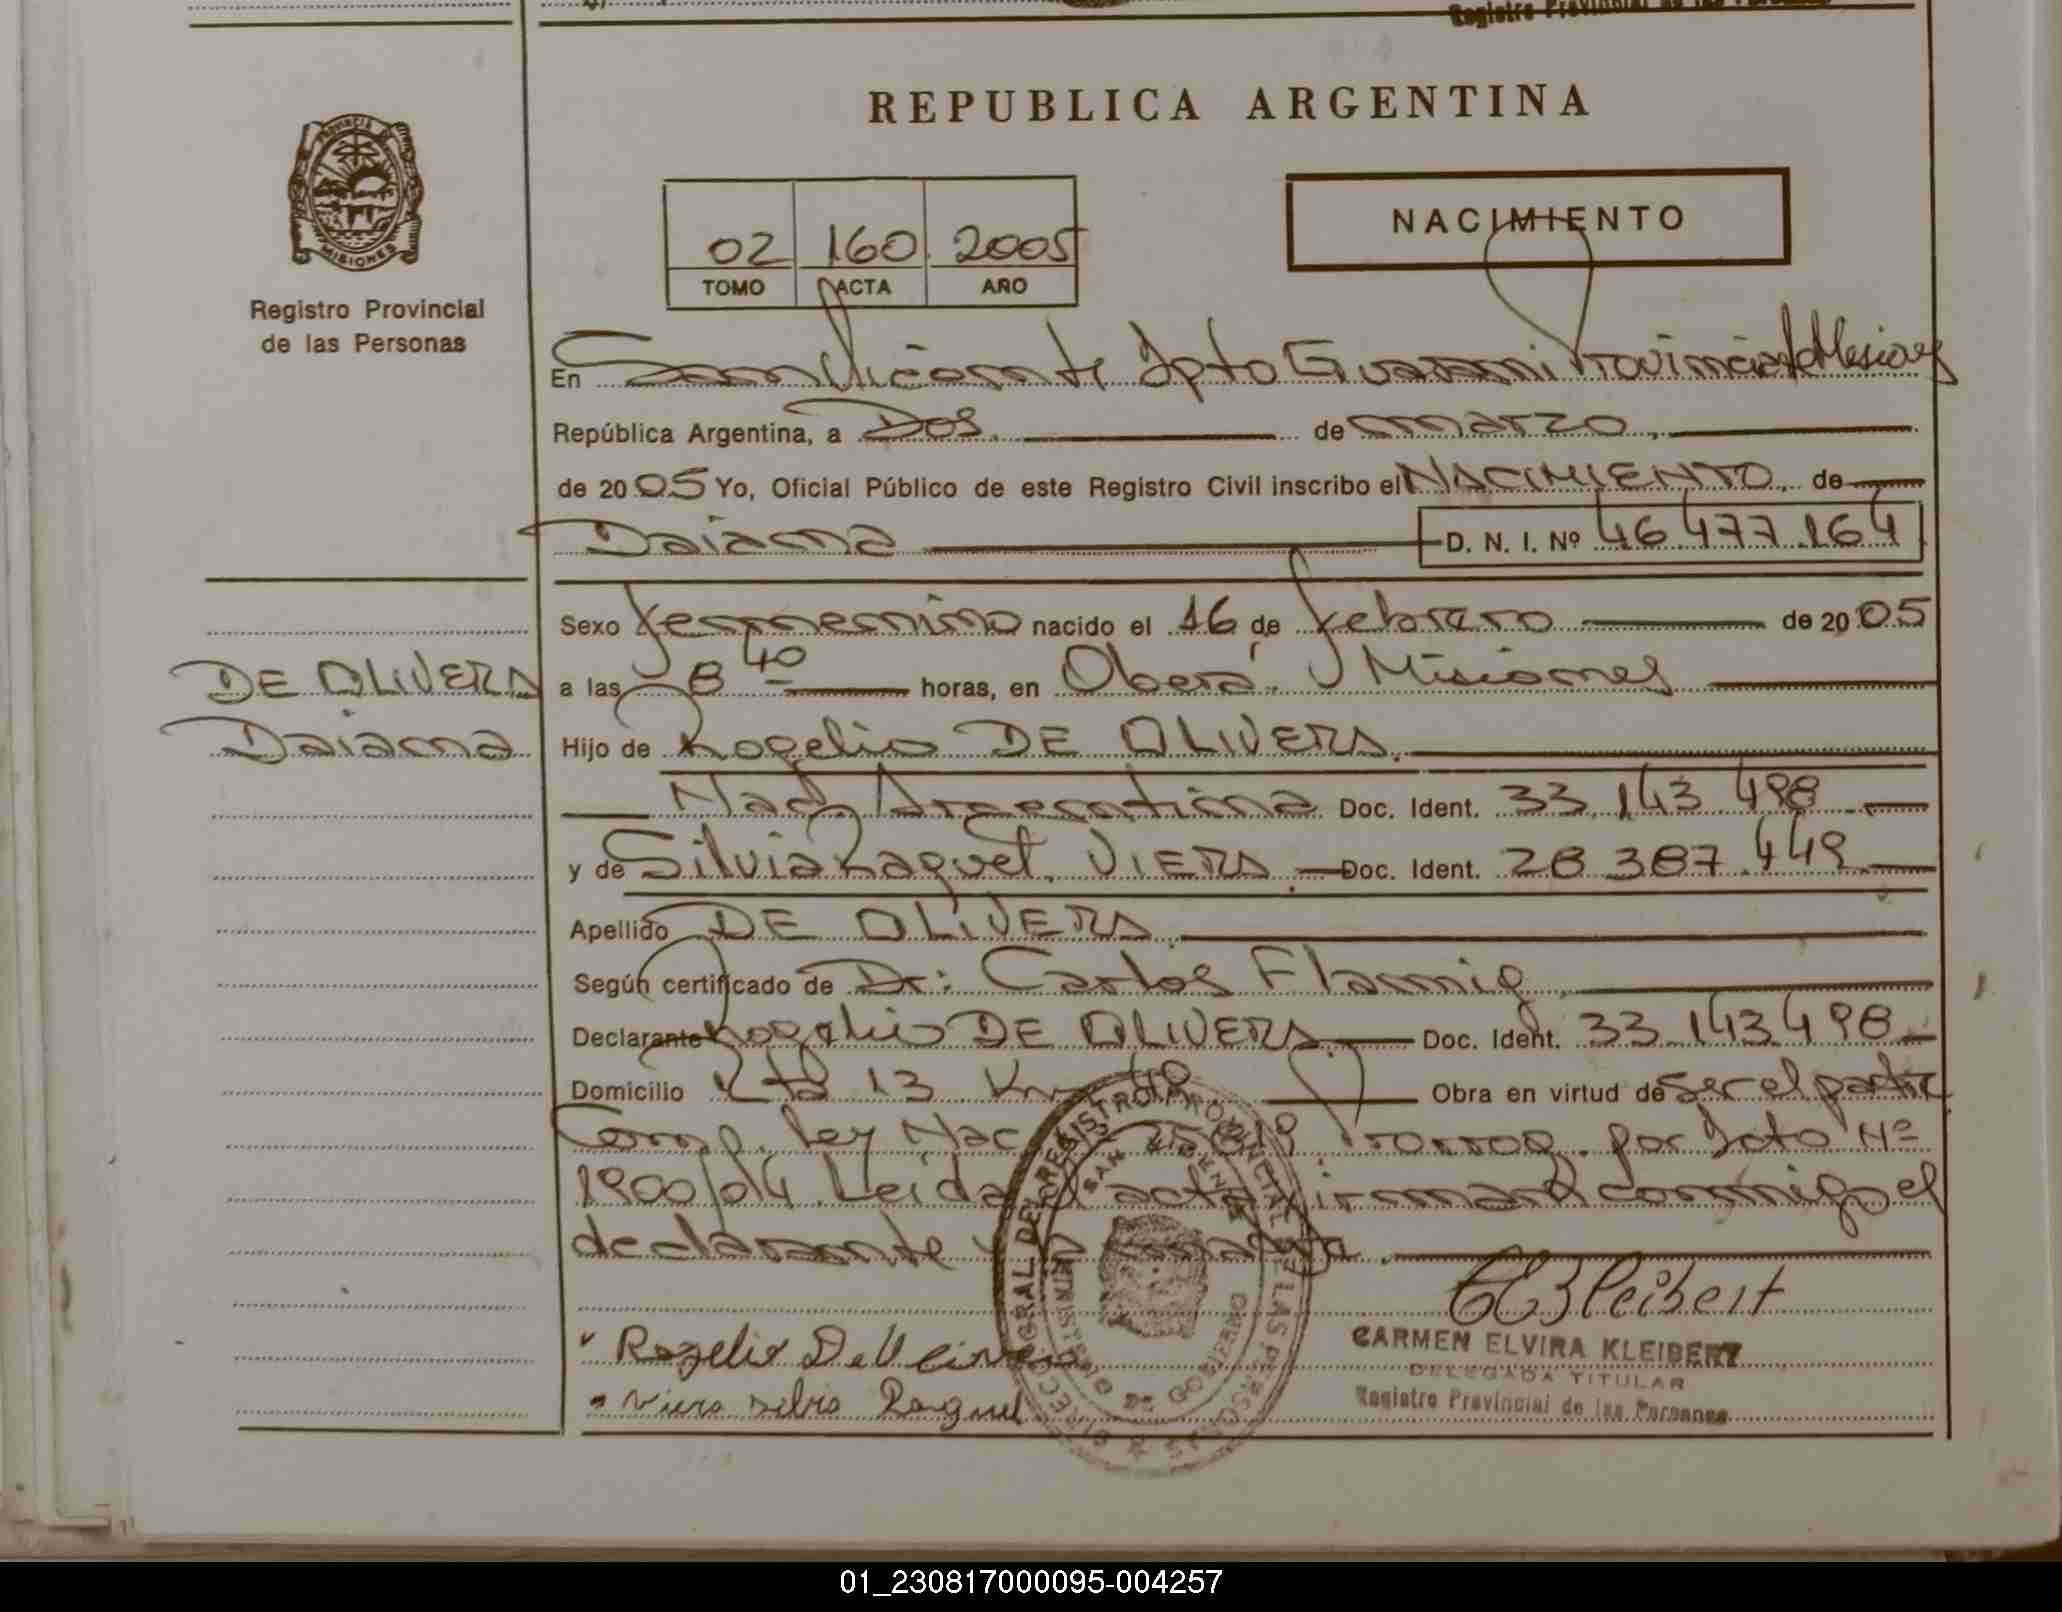 REPUBLICA ARGENTINA
PROVINCIA DE
MISIONES
Registro Provincial
de las Personas
02 160 2005
TOMO ACTA AÑO
NACIMIENTO
En San Vicente Dpto Guarani Provincia de Misiones
República Argentina, a Dos de marzo
de 2005 Yo, Oficial Público de este Registro Civil inscribo el NACIMIENTO de
Daiana D. N. I. Nº 46 477 164
Sexo femenino nacido el 16 de febrero de 2005
a las 8 40 horas, en Oberá. Misiones
DE OLIVERA
Daiana
Hijo de Rogelio DE OLIVERA.
Nac. Argentina Doc. Ident. 33.143 498
y de Silvia Raquel. VIERA. Doc. Ident. 28 387.449
Apellido DE OLIVERA.
Según certificado de Dr: Carlos Flannig
Declarante Rogelio DE OLIVERA. Doc. Ident. 33.143 498
Domicilio Rta 13 Km 40 Obra en virtud de ser el padre
Comp. ley Nac 25819 Prorrog. por Dcto Nº
1900/04. Leida el acta firman conmigo el
declarante y la
CEKleibert
CARMEN ELVIRA KLEIBERT
DELEGADA TITULAR
Registro Provincial de las Personas
Rogelio De Oliveira
Viera Silvia Raquel
DIRECC. GRAL. DEL REGISTRO PROVINCIAL DE LAS PERSONAS
SAN VICENTE
MINISTERIO DE GOBIERNO
01_230817000095-004257